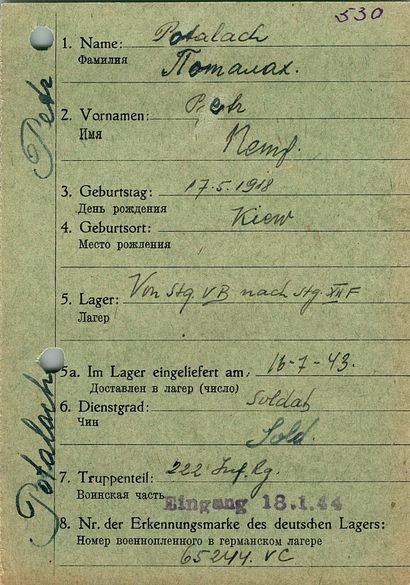 530
1. Name: Potalach
Фамилия Поталах.
2. Vornamen: Petr
Имя Петр.
3. Geburtstag: 17.5.1918
День рождения
4. Geburtsort: Kiew
Место рождения
5. Lager: Von Stg. VB nach Stg. XII F
Лагер
5a. Im Lager eingeliefert am, 16-7-43.
Доставлен в лагер (число)
6. Dienstgrad: Soldat
Чин Sold.
7. Truppenteil: 222 Inf. Rg.
Воинская часть Eingang 18.1.44
8. Nr. der Erkennungsmarke des deutschen Lagers:
Номер военнопленного в германском лагере
65244. VC
Potalach Petr